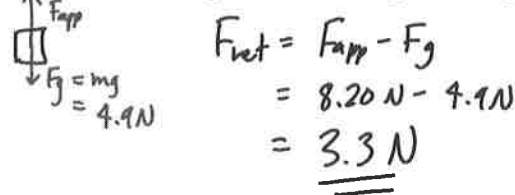 Fapp
Fg = mg
= 4.9N
Fnet = Fapp - Fg
= 8.20 N - 4.9N
= 3.3 N